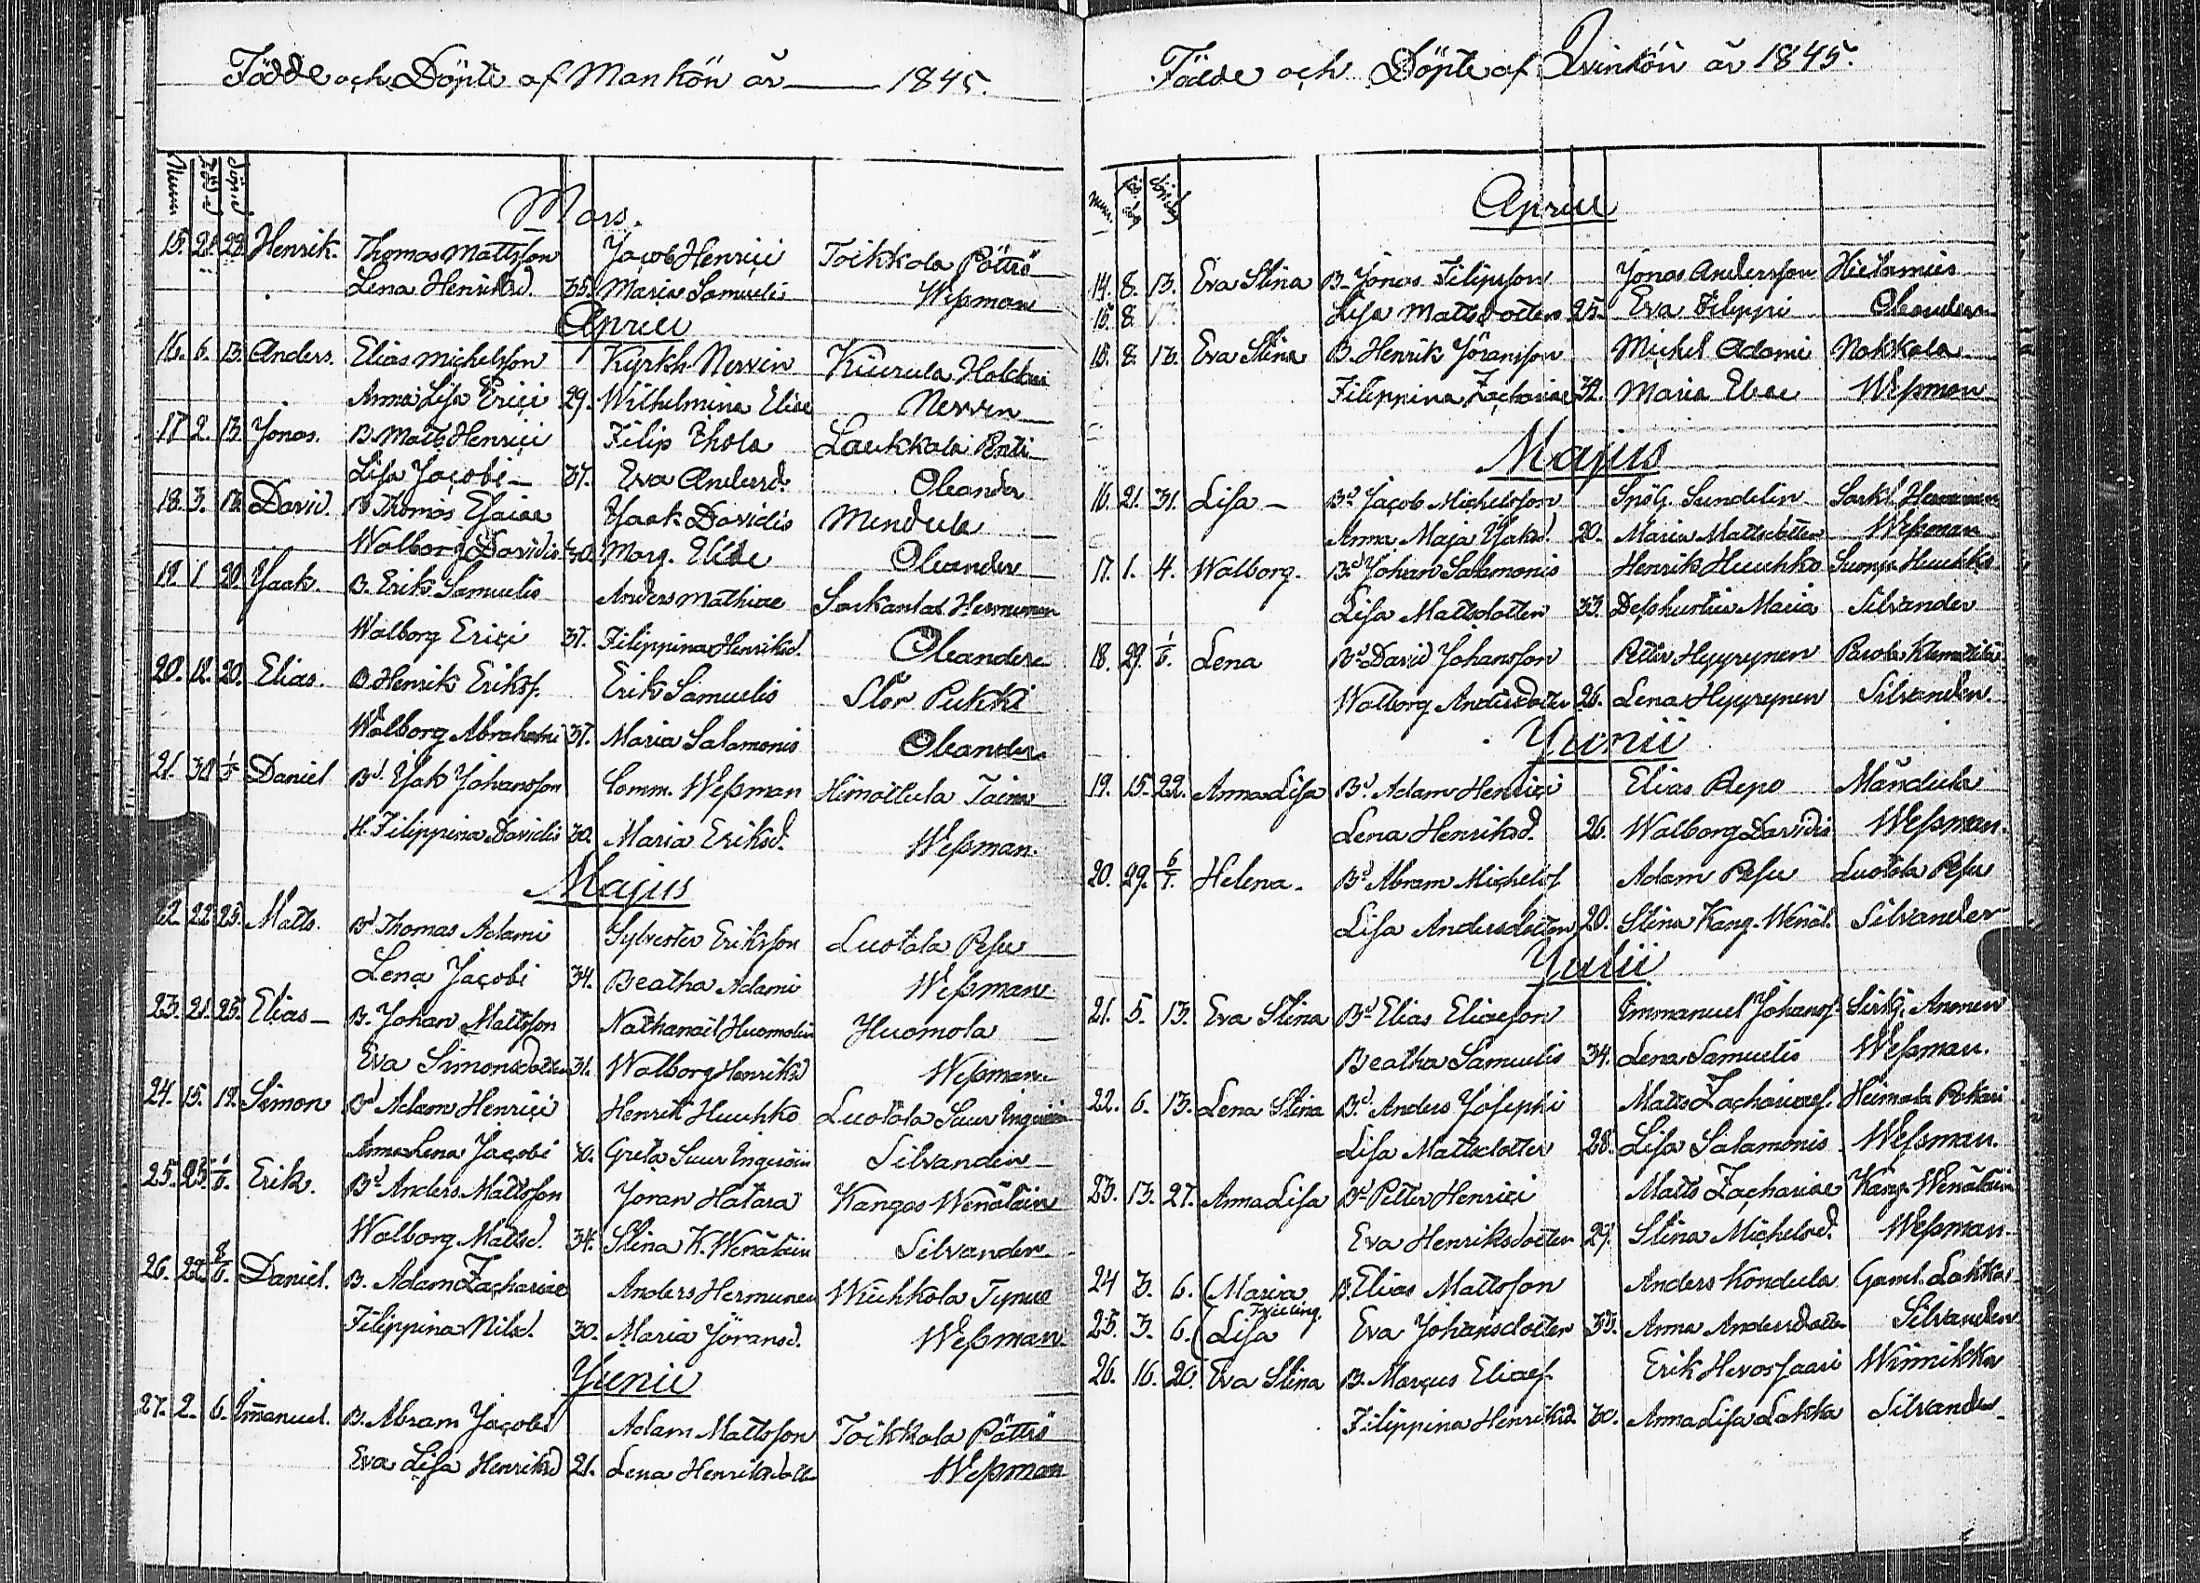 Födde och Döpte af Mankön år 1845.
Num Född Döpte
Mars.
15. 21. 23. Henrik. Thomas Mattsson Jacob Henrici Toikkola Pöttrö
Lena Henriksd. 35. Maria Samuelis Weßman
Aprill
16. 6. 13. Anders. Elias Michelsson Kyrkh. Nervin Kiurula
Anna Lisa Erici 29. Wilhelmina Eliæ Nervin
17 2. 13. Jonas. B. Matts Henrici Filip Ihola Laukkala Penti
Lisa Jacobi 37. Eva Andersd. Oleander
18. 3. 13. David. B. Thomas Esaiae Isaak Davidis Mendula
Walborg Davidis 40. Marg. Eliæ Oleander
19 1 20. Isaak. B. Erik Samuelis Anders Mathiae Sarkamas Hermunen
Walborg Erici 37. Filippina Henriksd. Oleander
20. 12. 20. Elias. B. Henrik Eriks. Erik Samuelis Stor Pukki
Walborg Abrahami 37. Maria Salamonis Oleander
21. 30 1/5 Daniel Bd. Isak Johansson Comm. Weßman Himottula Toima
H. Filippina Davidis 30. Maria Eriksd. Weßman.
Majus
22. 22. 25. Matts. Bd Thomas Adami Sylvester Eriksson Luotola Pesu
Lena Jacobi 34. Beatha Adami Weßman
23. 21. 25. Elias B. Johan Mattsson Nathanaël Huomolin Huomola
Eva Simonsdotter 31. Walborg Henriksd Weßman
24. 15. 19. Simon Bd Adam Henrici Henrik Huuhko Luotola Suur Ingeröin
Anna Lena Jacobi 40. Greta Suur Ingeröin Silvander
25. 25. 1/6. Erik. Bd Anders Mattsson Joran Hatara Kangas Wenäläin
Walborg Mattsd. 34. Stina K. Wenäläin Silvander
26. 22. 8/6. Daniel. B. Adam Zachariae Anders Hermunen Wiihkola Tynus
Filippina Nilsd. 30. Maria Joransd. Weßman
Junii
27. 2. 6. Immanuel. B. Abram Jacobi Adam Mattsson Toikkola Pöttrö
Eva Lisa Henriksd 21. Lena Henriksdotter Weßman
Födde och Döpte af Qvinkön år 1845.
Num. Född Döpte
Aprill
14. 8. 13. Eva Stina B. Jonas Filipsson Jonas Andersson Hietamies
15. 8. Lisa Mattsdotter 25. Eva Filippi Oleander
15. 8. 13. Eva Stina B. Henrik Jöransson Michel Adami Nokkala
Filippina Zachariae 32. Maria Evae Weßman
Majus
16. 21. 31. Lisa Bd Jacob Michelsson Spög. Sundelin Sarkl. Hermunen
Anna Maja Isaksd. 20. Maria Mattsdotter Weßman
17. 1. 4. Walborg. Bd Johan Salamonis Henrik Huuhko Suomja Huuhko
Lisa Mattsdotter 33. Dess hustru Maria Silvander
18. 29. 1/6. Lena Bd David Johansson Petter Hyyrynen
Walborg Andersdotter 26. Lena Hyyrynen Silvander.
Junii
19. 15. 22. Anna Lisa Bd Adam Henrici Elias Repo Mändula
Lena Henriksd. 26. Walborg Davidis Weßman.
20. 29. 6/7. Helena. Bd Abram Michelss Adam Pesu Luotola Pesu
Lisa Andersdotter 20. Stina Kang. Wenäl. Silvander
Julii
21. 5. 13. Eva Stina Bd Elias Eliaeson Immanuel Johanss. Sirkj. Anonen
Beatha Samuelis 34. Lena Samuelis Weßman.
22. 6. 13. Lena Stina Bd. Anders Josephi Matts Zachariaes. Heimala Pekari
Lisa Mattsdotter 28. Lisa Salamonis Weßman.
23. 13. 27. Anna Lisa Bd Petter Henrici Matts Zachariae Kang. Wenäläin
Eva Henriksdotter 29. Stina Michelsd. Weßman.
24 3. 6. (Maria B. Elias Mattsson Anders Kondula Gaml. Lakka
Tvilling.
25. 3. 6. (Lisa Eva Johansdotter 33. Anna Andersdotter Silvander
26. 16. 20. Eva Stina B. Marcus Eliaes. Erik Hevossaari Winnikka
Filippina Henriksd 30. Anna Lisa Lakka Silvander